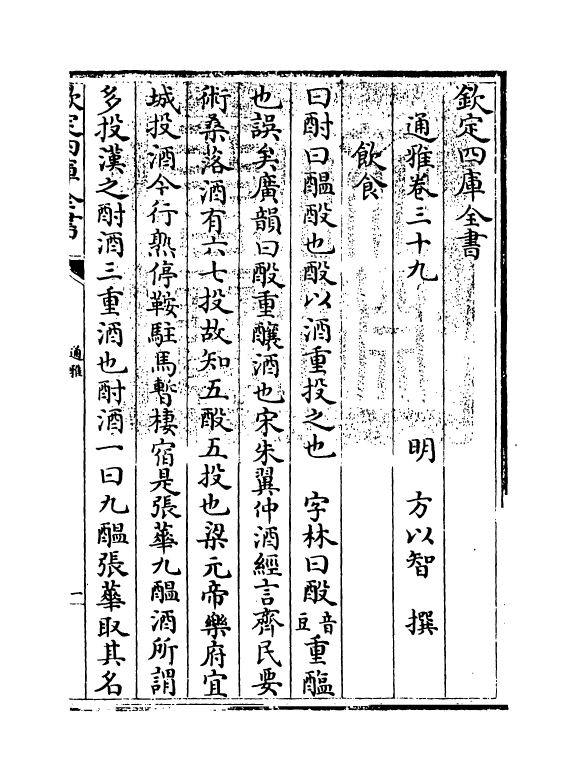 欽定四庫全書
通雅卷三十九
明 方以智 撰
飲食
曰酎曰醖酘也酘以酒重投之也 字林曰酘音豆重醖
也誤矣廣韻曰酘重釀酒也宋朱翼仲酒經言齊民要
術桑落酒有六七投故知五酘五投也梁元帝樂府宜
城投酒今行熟停鞍駐馬暫棲宿是張華九醖酒所謂
多投漢之酎酒三重酒也酎酒一曰九醖張華取其名
欽定四庫全書
通雅
一